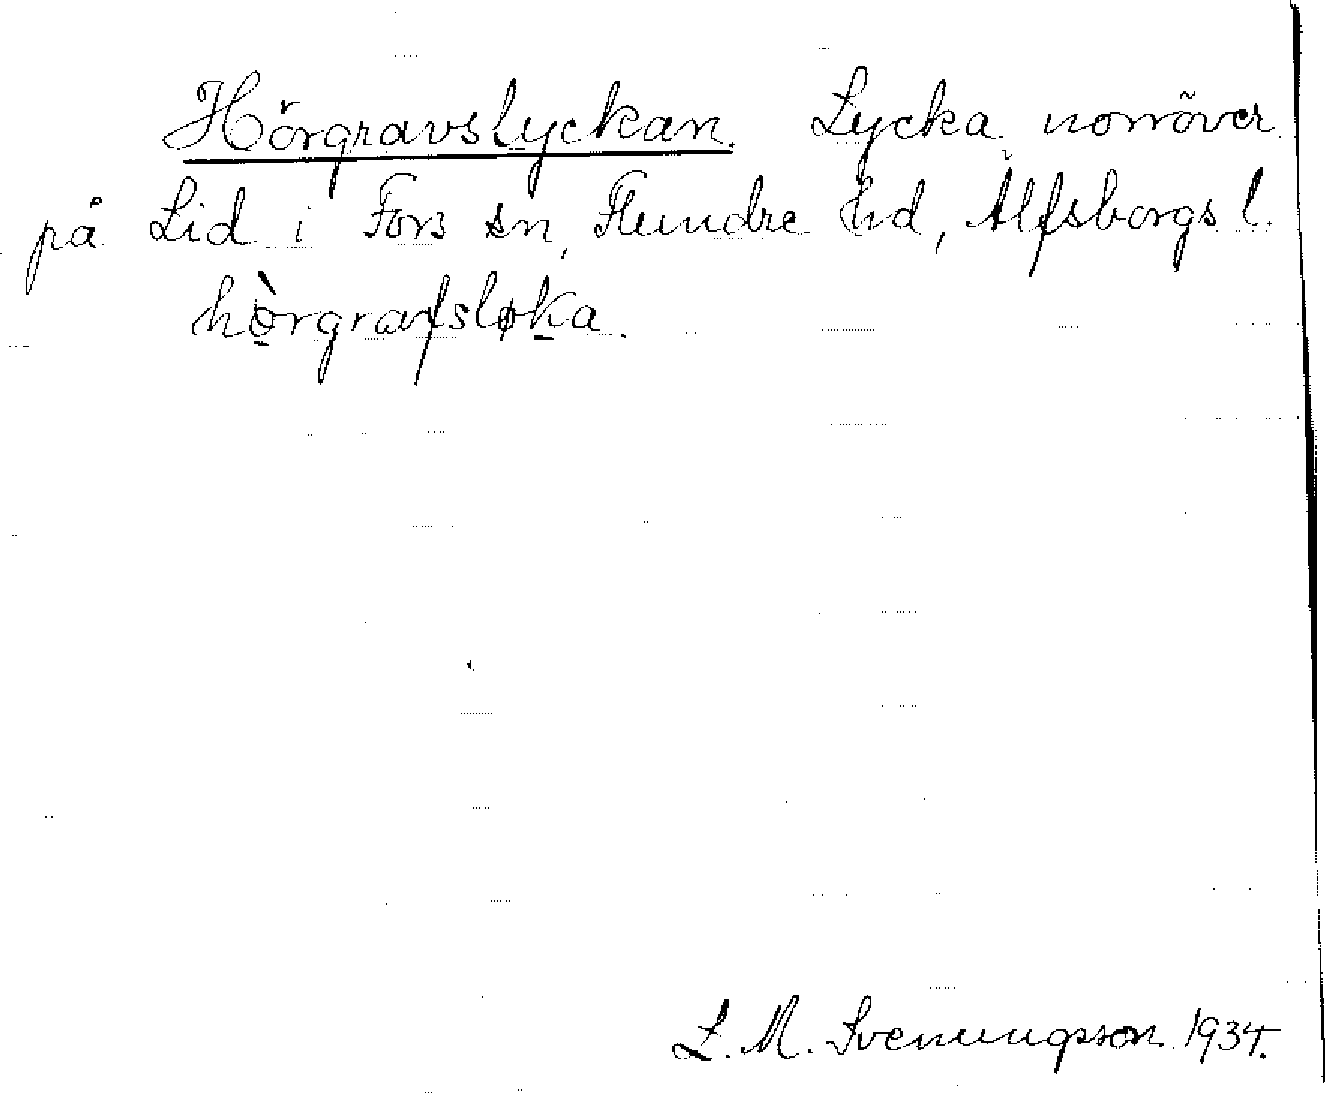 Hörgravslyckan. Lycka norröver
på Lid i Fors sn, Flundre hd, Älfsborgs l.
hòrgrafsløka.
L. M. Svenungsson 1934.